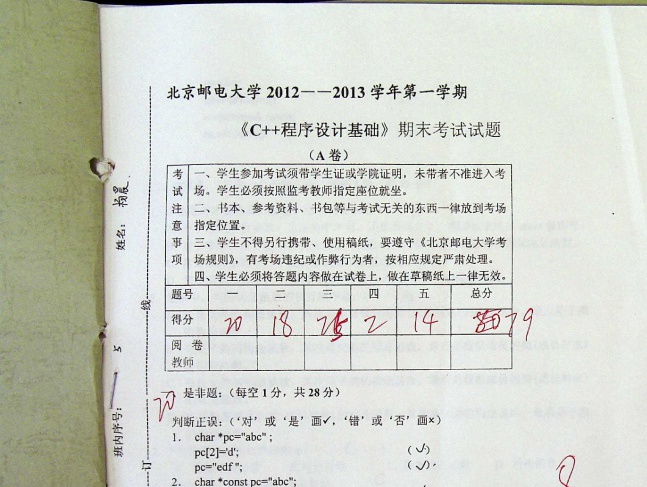 北京邮电大学 2012——2013 学年第一学期
《C++程序设计基础》期末考试试题
(A 卷)
考试注意事项
一、学生参加考试须带学生证或学院证明，未带者不准进入考
场。学生必须按照监考教师指定座位就坐。
二、书本、参考资料、书包等与考试无关的东西一律放到考场
指定位置。
三、学生不得另行携带、使用稿纸，要遵守《北京邮电大学考
场规则》，有考场违纪或作弊行为者，按相应规定严肃处理。
四、学生必须将答题内容做在试卷上，做在草稿纸上一律无效。
题号 一 二 三 四 五 总分
得分 20 18 25 2 14 79
阅卷
教师
20
一 是非题：（每空 1 分，共 28 分）
判断正误：（‘对’或‘是’画✓，‘错’或‘否’画×）
1. char *pc="abc" ;
pc[2]='d'; (✓)
pc="edf "; (✓)
2. char *const pc="abc";
姓名：
班内序号： 5
线
订